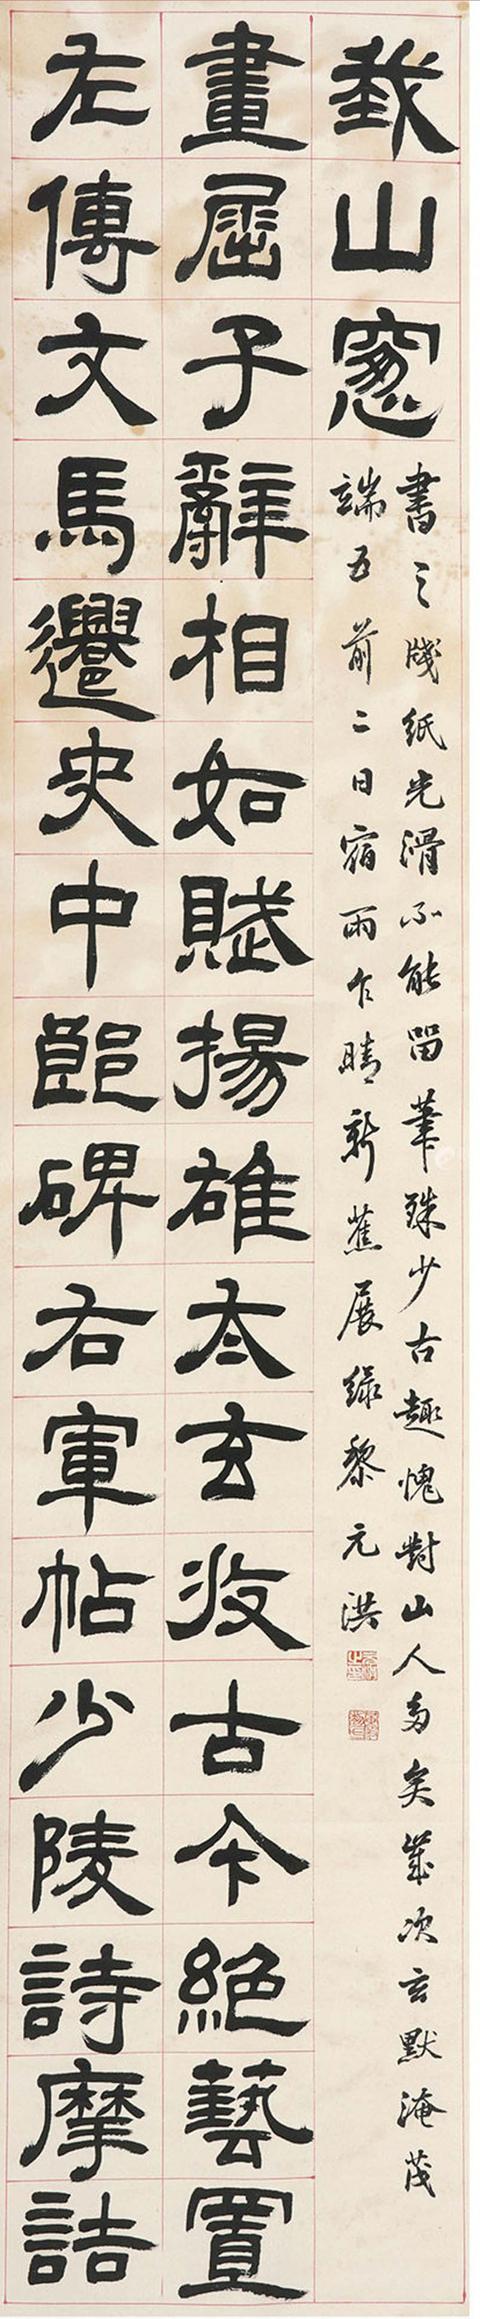 左傳文馬遷史中郎碑右軍帖少陵詩摩詰
畫屈子辭相如賦揚雄太玄收古今絕藝置
我山窗
書之牋紙光滑不能留筆殊少古趣愧對山人多矣歲次玄默淹茂
端五前二日宿雨乍晴新蕉展綠黎元洪